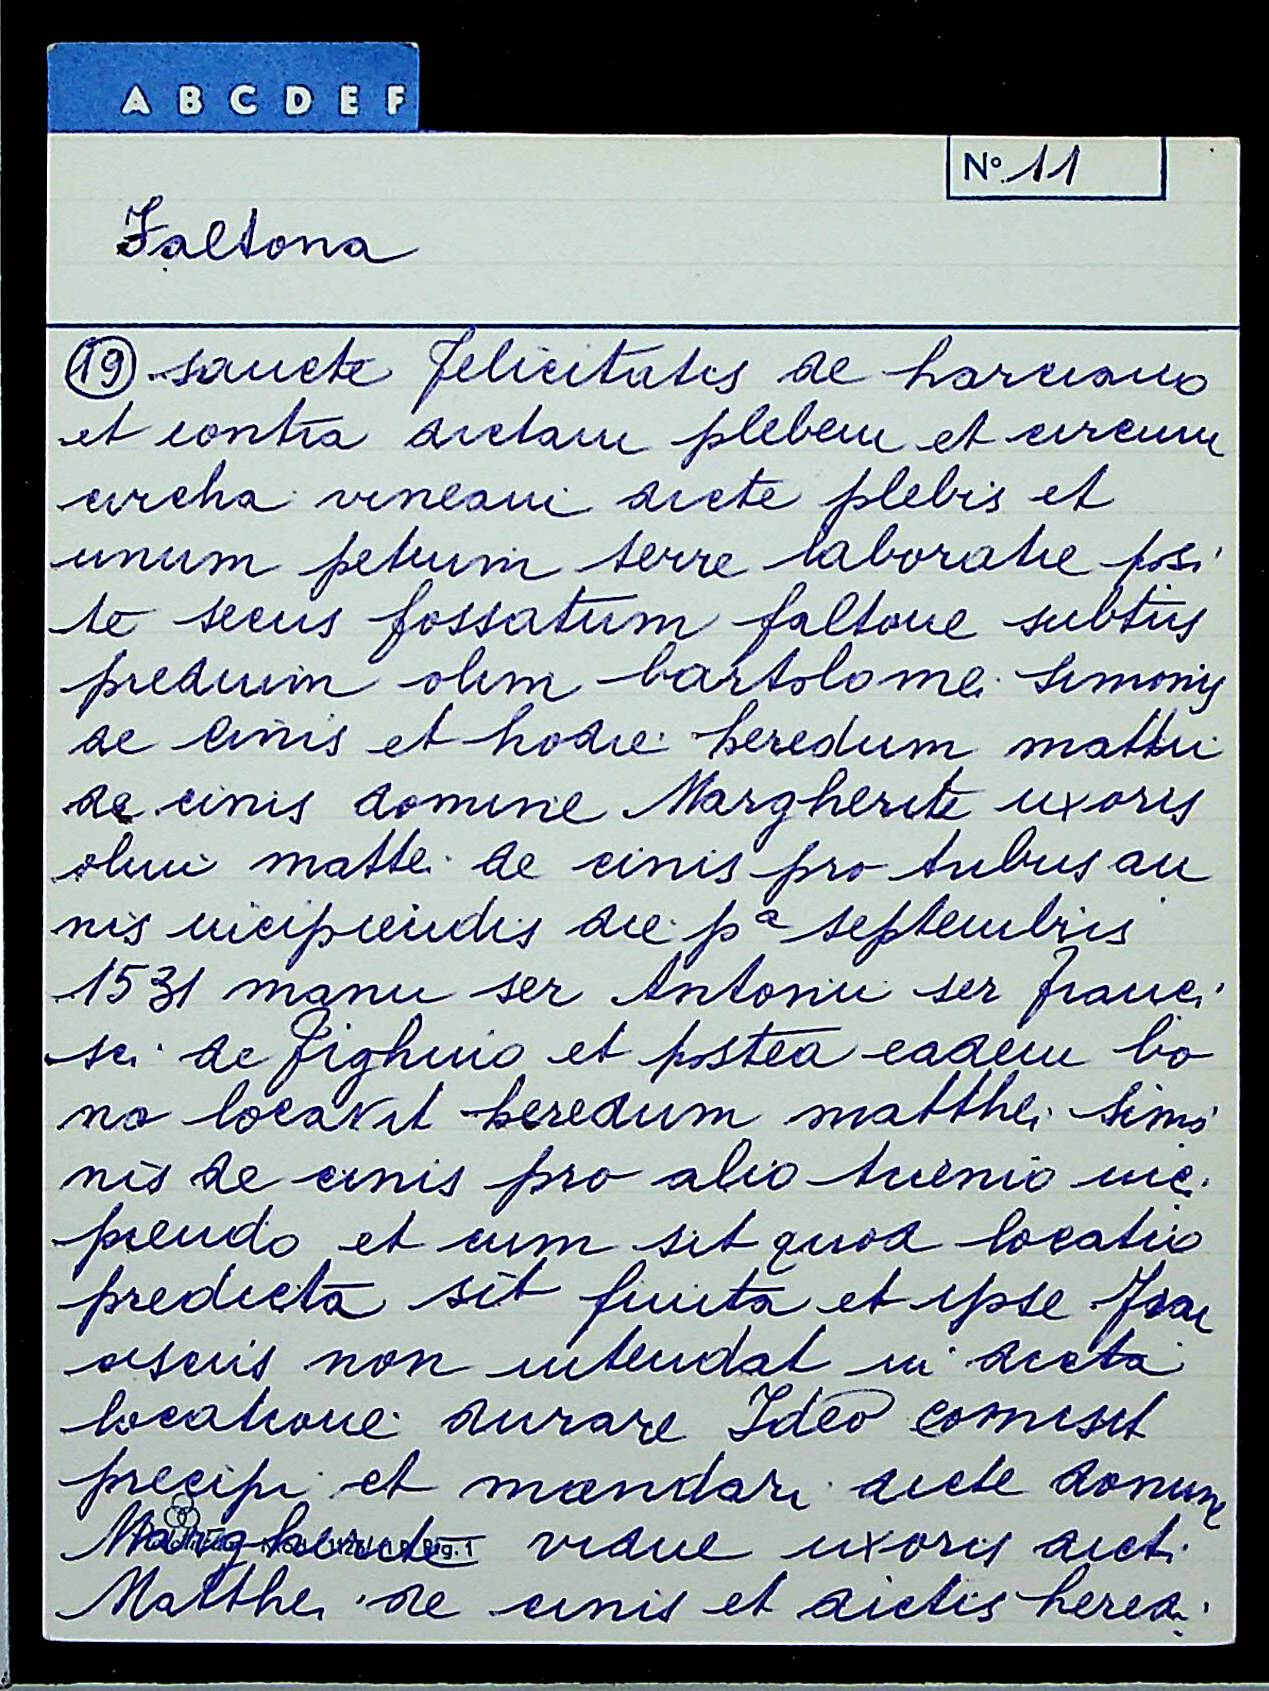 A B C D E F
Nº 11
Faltona
(19) sancte felicitatis de harciano
et contra dictam plebem et circum
circha vineam dicte plebis et
unum petium terre laboratie posi
te secus fossatum faltone subtus
predium olim bartolomei Simonis
de cinis et hodie heredum matthei
de cinis domine Margherite uxoris
olim mattei de cinis pro tribus an
nis incipiendis die pª septembris
1531 manu ser Antonii ser franci
sci de fighino et postea eadem bo
na locavit heredum matthei simo
nis de cinis pro alio triennio inci
piendo et cum sit quod locatio
predicta sit finita et ipse fran
ciscus non intendat in dicta
locatione durare Ideo comisit
precipi et mandari dicte domine
Margherite vidue uxoris dicti
Matthei de cinis et dictis hered.